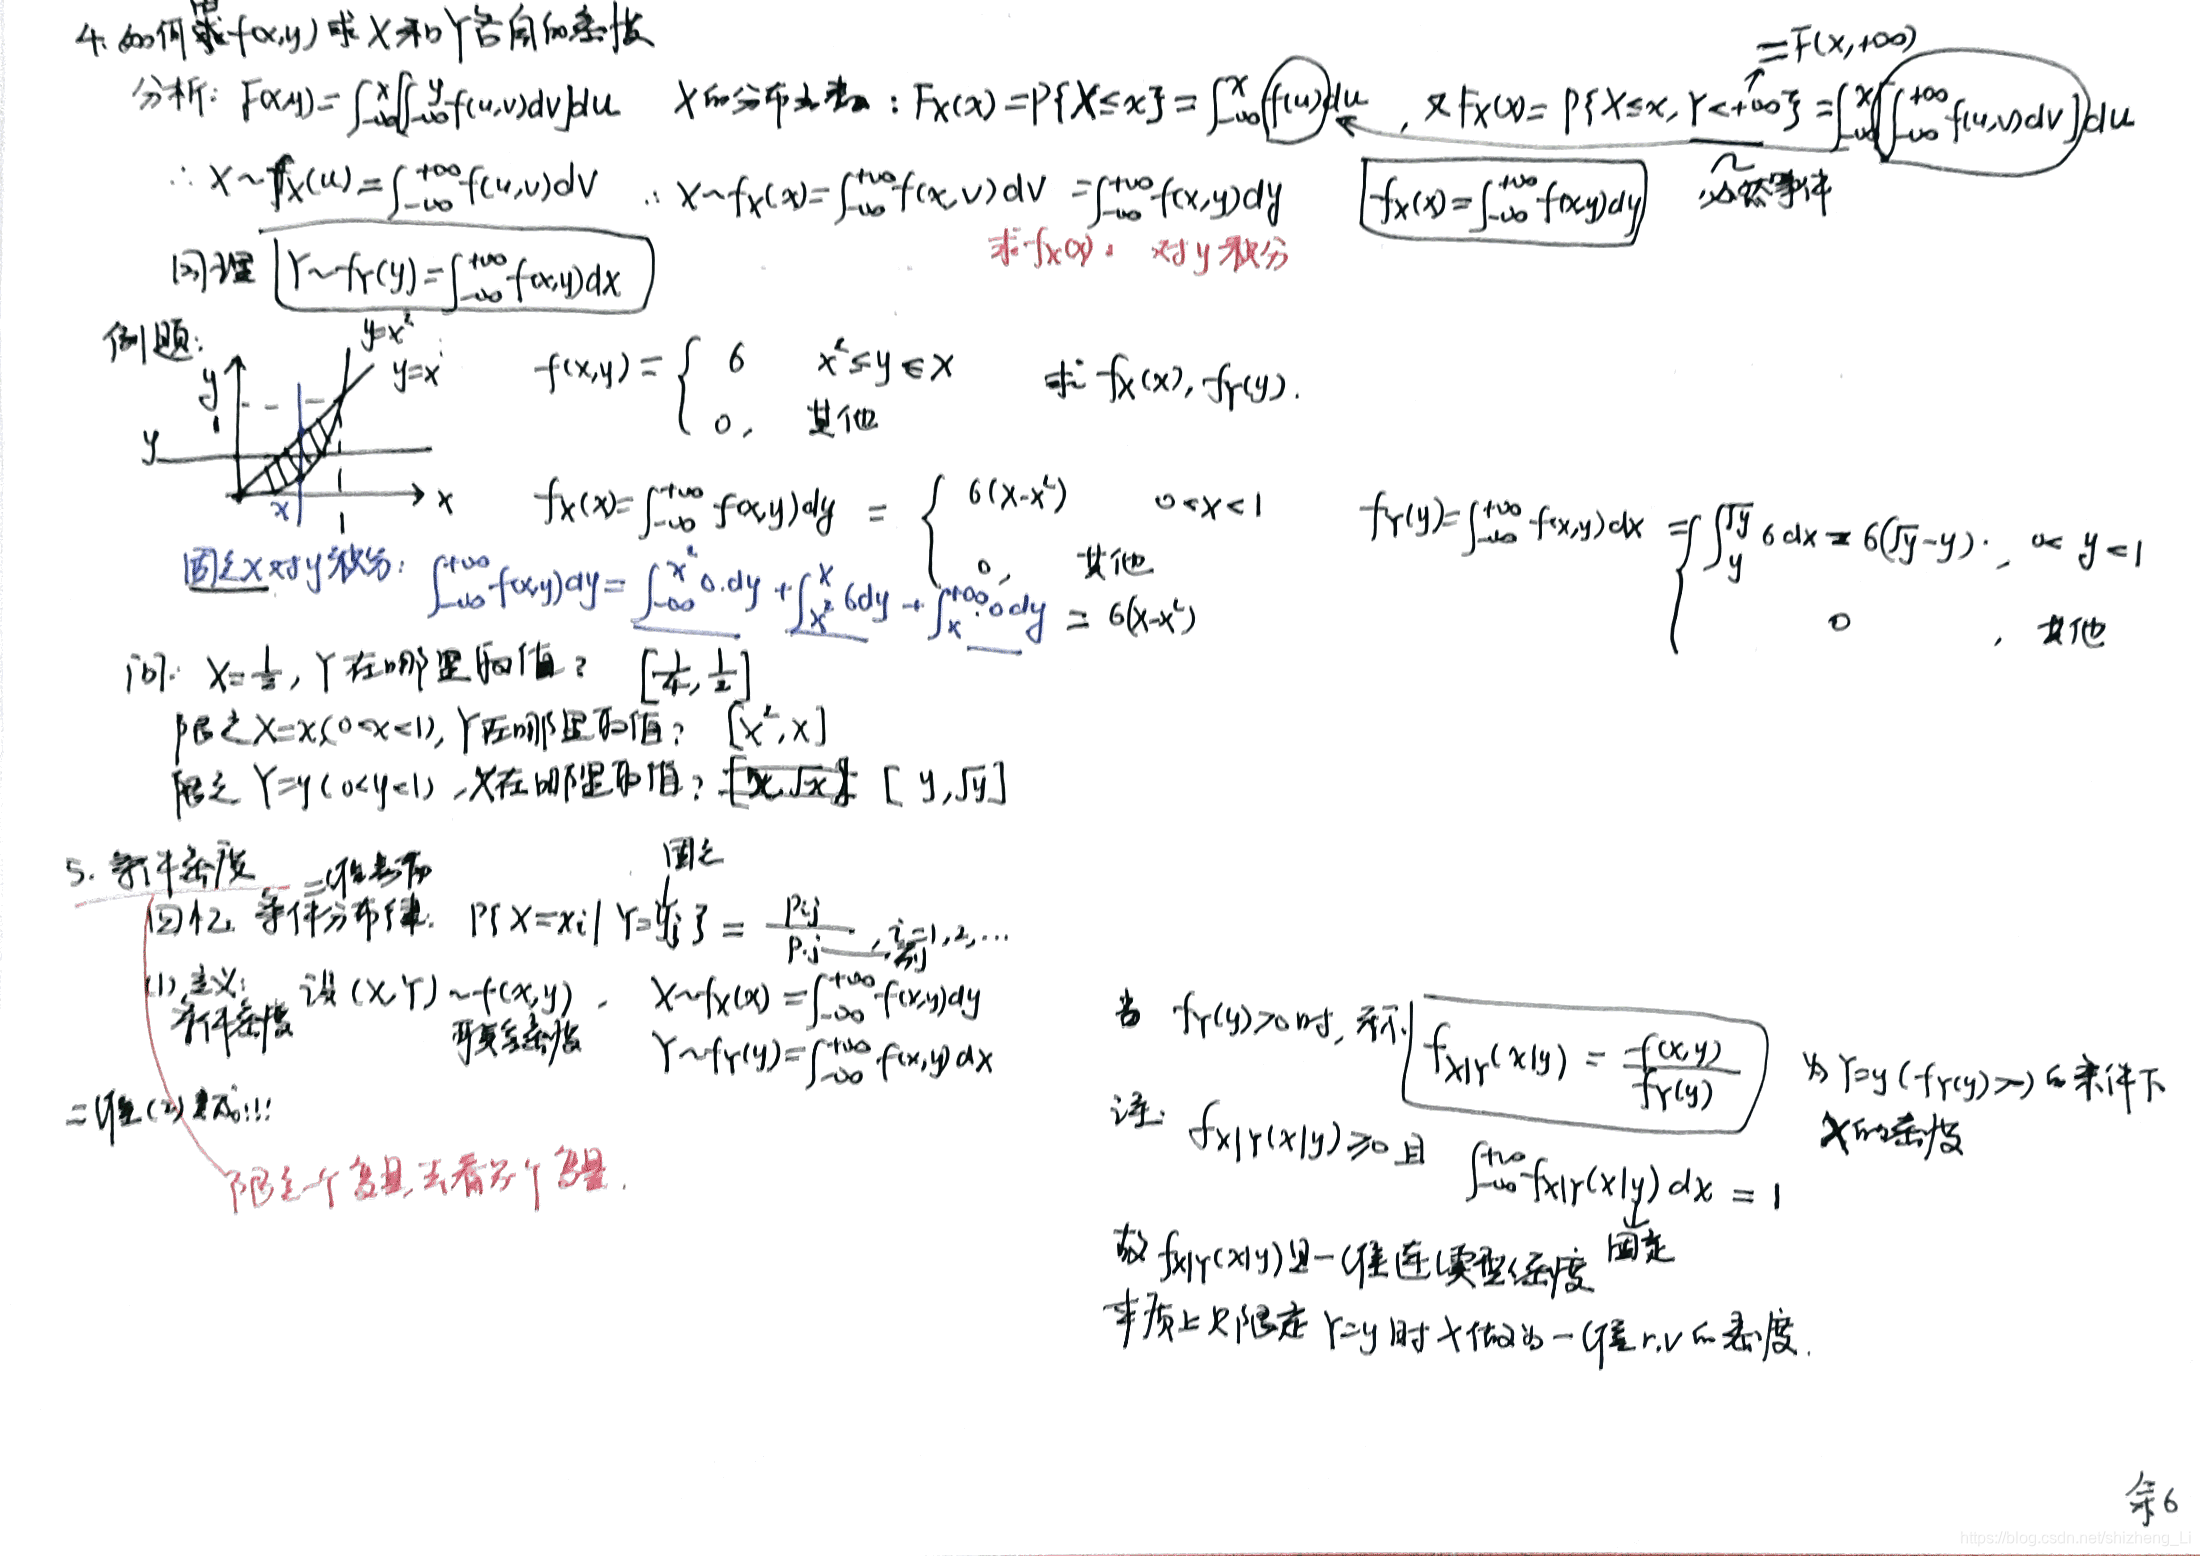 4. 如何由f(x,y)求X和Y各自的密度
分析: F(x,y)=∫_{-∞}^{x}[∫_{-∞}^{y}f(u,v)dv]du X的分布函数: F_X(x)=P{X≤x}=∫_{-∞}^{x}f(u)du, 又F_X(x)=P{X≤x, Y<+∞}=∫_{-∞}^{x}[∫_{-∞}^{+∞}f(u,v)dv]du
=F(x,+∞)
必然事件
∴ X~f_X(u)=∫_{-∞}^{+∞}f(u,v)dv ∴ X~f_X(x)=∫_{-∞}^{+∞}f(x,v)dv=∫_{-∞}^{+∞}f(x,y)dy f_X(x)=∫_{-∞}^{+∞}f(x,y)dy
求f_X(x): 对y积分
同理 Y~f_Y(y)=∫_{-∞}^{+∞}f(x,y)dx
例题:
y=x²
y=x
y
1
y
x
x
1
f(x,y)={ 6 x²≤y≤x
0, 其他
求 f_X(x), f_Y(y).
f_X(x)=∫_{-∞}^{+∞}f(x,y)dy={ 6(x-x²) 0<x<1
0, 其他
f_Y(y)=∫_{-∞}^{+∞}f(x,y)dx={ ∫_{y}^{√y}6dx=6(√y-y), 0<y<1
0, 其他
固定x对y积分: ∫_{-∞}^{+∞}f(x,y)dy=∫_{-∞}^{x²}0·dy+∫_{x²}^{x}6dy+∫_{x}^{+∞}0dy=6(x-x²)
问: X=1/2, Y在哪里取值? [1/4, 1/2]
限定X=x(0<x<1), Y在哪里取值? [x², x]
限定Y=y(0<y<1), X在哪里取值? [y, √y]
5. 条件密度
回忆 条件分布律: P{X=xi|Y=yj}=pij/p·j, i=1,2,…
固定
(1) 定义: 设(X,Y)~f(x,y), X~f_X(x)=∫_{-∞}^{+∞}f(x,y)dy
条件密度
Y~f_Y(y)=∫_{-∞}^{+∞}f(x,y)dx
当 f_Y(y)>0时, 称 f_{X|Y}(x|y)=f(x,y)/f_Y(y) 为Y=y(f_Y(y)>0)的条件下
X的密度
注: f_{X|Y}(x|y)≥0且 ∫_{-∞}^{+∞}f_{X|Y}(x|y)dx=1
固定
故f_{X|Y}(x|y)是一维连续型密度
本质上只限定Y=y时X做为一维r.v的密度.
限定一个变量,去看另一个变量.
余6
https://blog.csdn.net/shizheng_Li